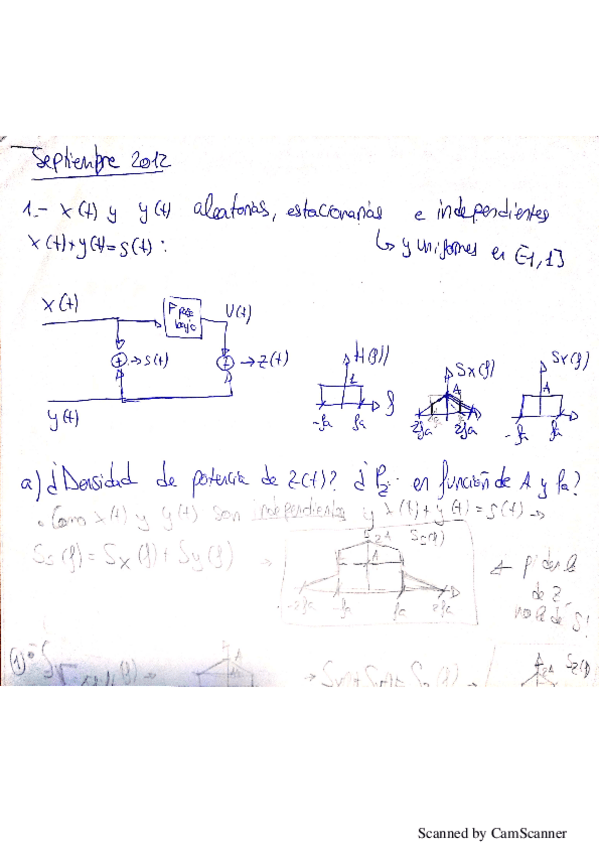 Septiembre 2012
1.- x(t) y y(t) aleatorias, estacionarias e independientes
x(t)+y(t)=s(t): ↳ y uniformes en [-1,1]
x(t) F. Paso bajo U(t)
+ → s(t) → z(t)
y(t)
H(f) 1 -fa fa f
Sx(f) A 2fa 2fa
Sy(f) A -fa fa
a) ¿Densidad de potencia de z(t)? ¿Pz? en función de A y fa?
Como x(t) y y(t) son independientes y x(t)+y(t)=s(t) →
Ss(f) = Sx(f) + Sy(f) →
2A Ss(f)
A
-2fa -fa fa 2fa
← piden la de z, no la de s!
(1)
A
2A Sz(f)
Scanned by CamScanner